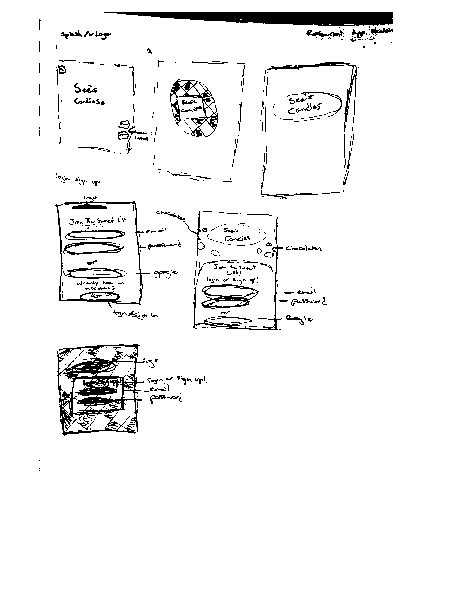 Splash / Logo
Restaurant App
See's
Candies
See's
Candies
See's
Candies
login sign up:
logo
Join The Sweet List
email
password
or
google
already have an
account?
Sign in
login/sign in
chocolates
See's
Candies
chocolates
Join the Sweet
List!
login or Sign up!
email
password
or
Google
logo
login or Sign up!
email
password